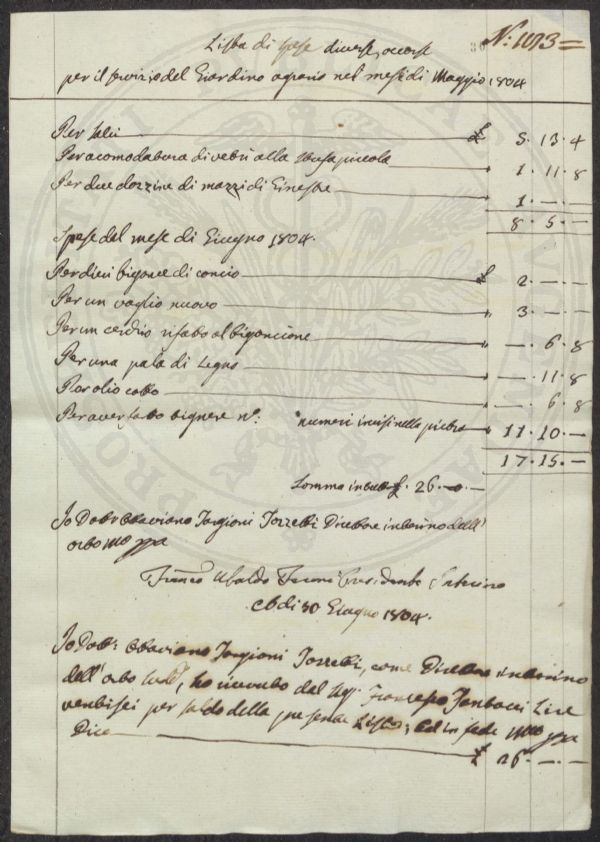 N.° 1013=
Lista di spese diverse, occorse
per il servizio del Giardino agrario nel mese di Maggio 1804
Per 5. 13. 4
Per acomodatura di vetri alla stufa piccola 1. 11. 8
Per due dozzine di mazzi di Ginestre 1. — . —
8. 5. —
Spese del mese di Giugno 1804.
Per dieci bigonce di concio £ 2. — . —
Per un vaglio nuovo 3. — . —
Per un cerchio rifatto al bigoncione — . 6. 8
Per una pala di Legno — . 11. 8
Per olio cotto — . 6. 8
Per aver fatto tignere n.° numeri incisi nella pietra 11. 10. —
17. 15. —
Somma in tutto £. 26. — o. —
Io Dott. Ottaviano Targioni Tozzetti Direttore interino dell'
orto mo ppa
Franco Ubaldo Feroni Presidente Interino
30 Giugno 1804.
Io Dott. Ottaviano Targioni Tozzetti, come Direttore interino
dell'orto sud.°, ho ricevuto dal Sig. Francesco Lire
ventisei per saldo della presente Lista; ed in fede mo ppa
Dico £ 26. — . —